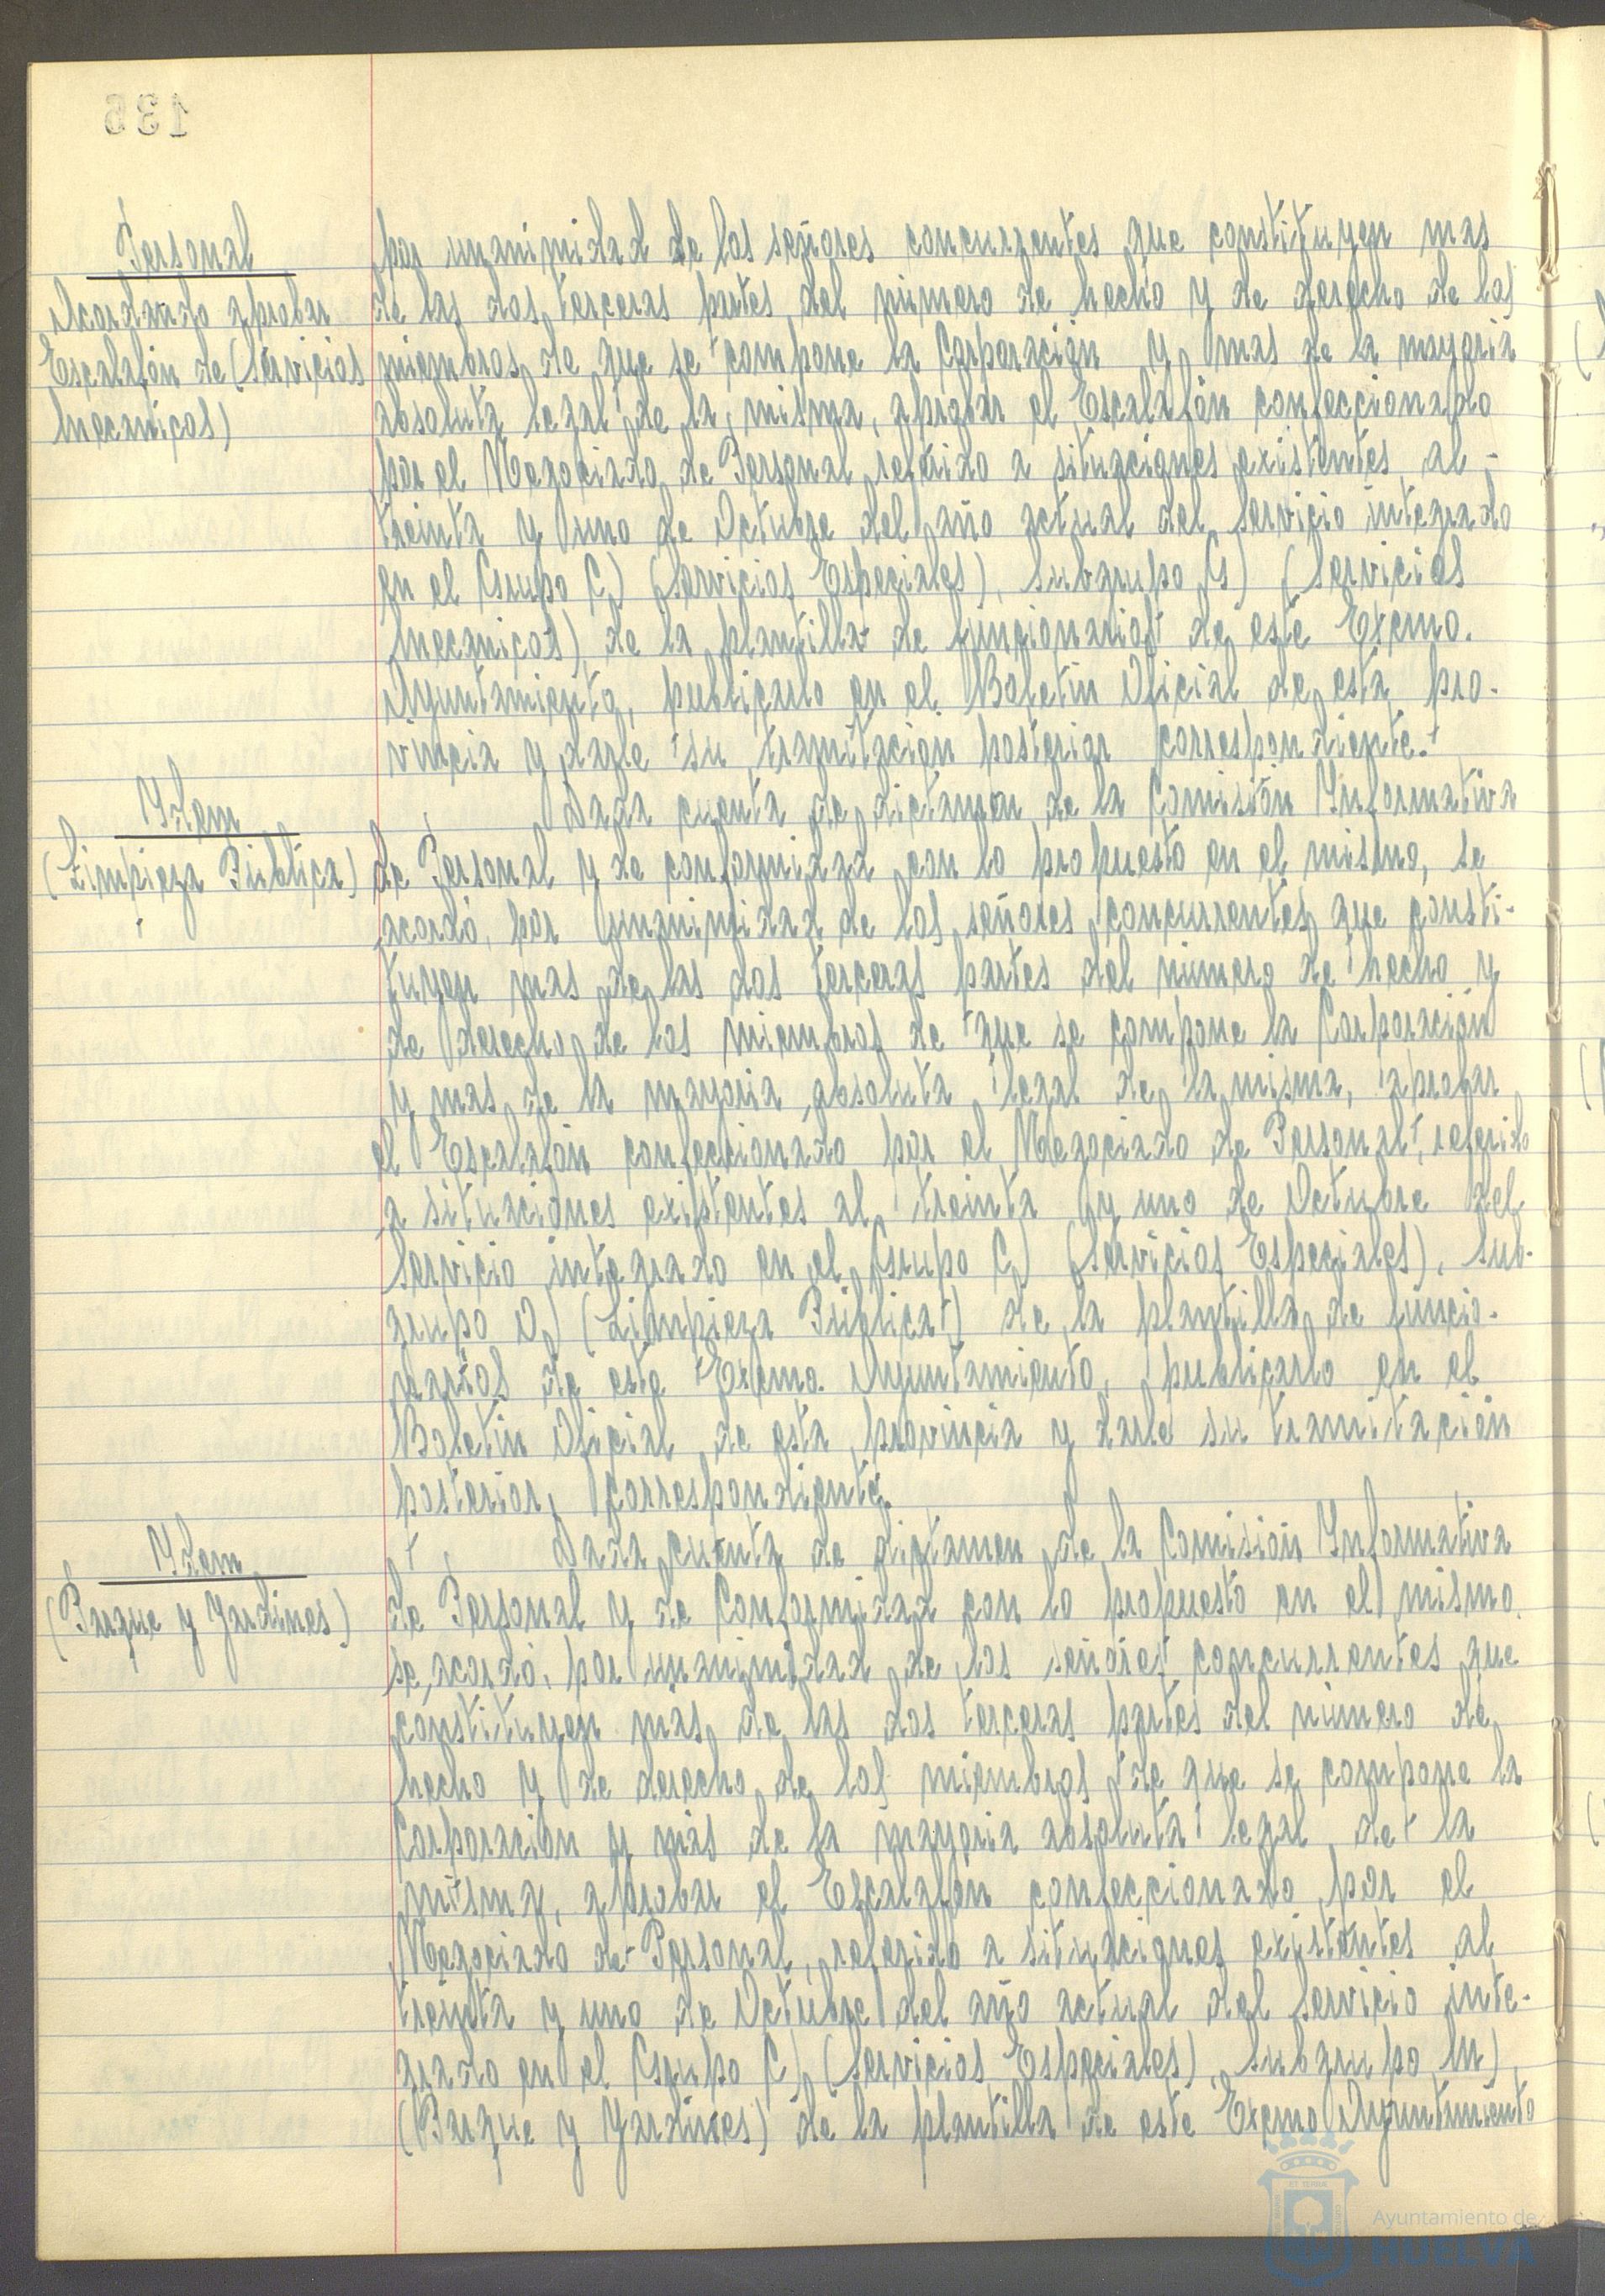 136
Personal
Acordando aprobar
Escalafón de (Servicios
Mecánicos)
por unanimidad de los señores concurrentes que constituyen mas
de las dos terceras partes del número de hecho y de derecho de los
miembros de que se compone la Corporación y mas de la mayoria
absoluta legal de la misma, aprobar el Escalafón confeccionado
por el Negociado de Personal referido a situaciones existentes al -
treinta y uno de Octubre del año actual del Servicio integrado
en el Grupo C) (Servicios Especiales), Subgrupo G) (Servicios
Mecanicos) de la plantilla de funcionarios de este Excmo.
Ayuntamiento, publicarlo en el Boletin Oficial de esta pro-
vincia y darle su tramitación posterior correspondiente.
Ydem
(Limpieza Pública)
Dada cuenta de dictamen de la Comisión Ynformativa
de Personal y de conformidad con lo propuesto en el mismo, se
acordó, por unanimidad de los señores concurrentes que consti-
tuyen mas de las dos terceras partes del número de hecho y
de derecho de los miembros de que se compone la Corporación
y mas de la mayoria absoluta legal de la misma, aprobar
el Escalafón confeccionado por el Negociado de Personal, referido
a situaciones existentes al treinta y uno de Octubre del
Servicio integrado en el Grupo C) (Servicios Especiales), Sub-
grupo D) (Limpieza Pública) de la plantilla de funcio-
narios de este Excmo. Ayuntamiento, publicarlo en el
Boletin Oficial de esta provincia y darle su tramitación
posterior correspondiente.
Ydem
(Parque y Jardines)
Dada cuenta de dictamen de la Comisión Ynformativa
de Personal y de Conformidad con lo propuesto en el mismo,
se acordó, por unanimidad de los señores concurrentes que
constituyen más de las dos terceras partes del número de
hecho y de derecho de los miembros de que se compone la
Corporación y más de la mayoria absoluta legal de la
misma, aprobar el Escalafón confeccionado por el
Negociado de Personal, referido a situaciones existentes al
treinta y uno de Octubre del año actual del Servicio inte-
grado en el Grupo C) (Servicios Especiales), Subgrupo M)
(Parque y Jardines) de la plantilla de este Excmo Ayuntamiento
Ayuntamiento de
HUELVA